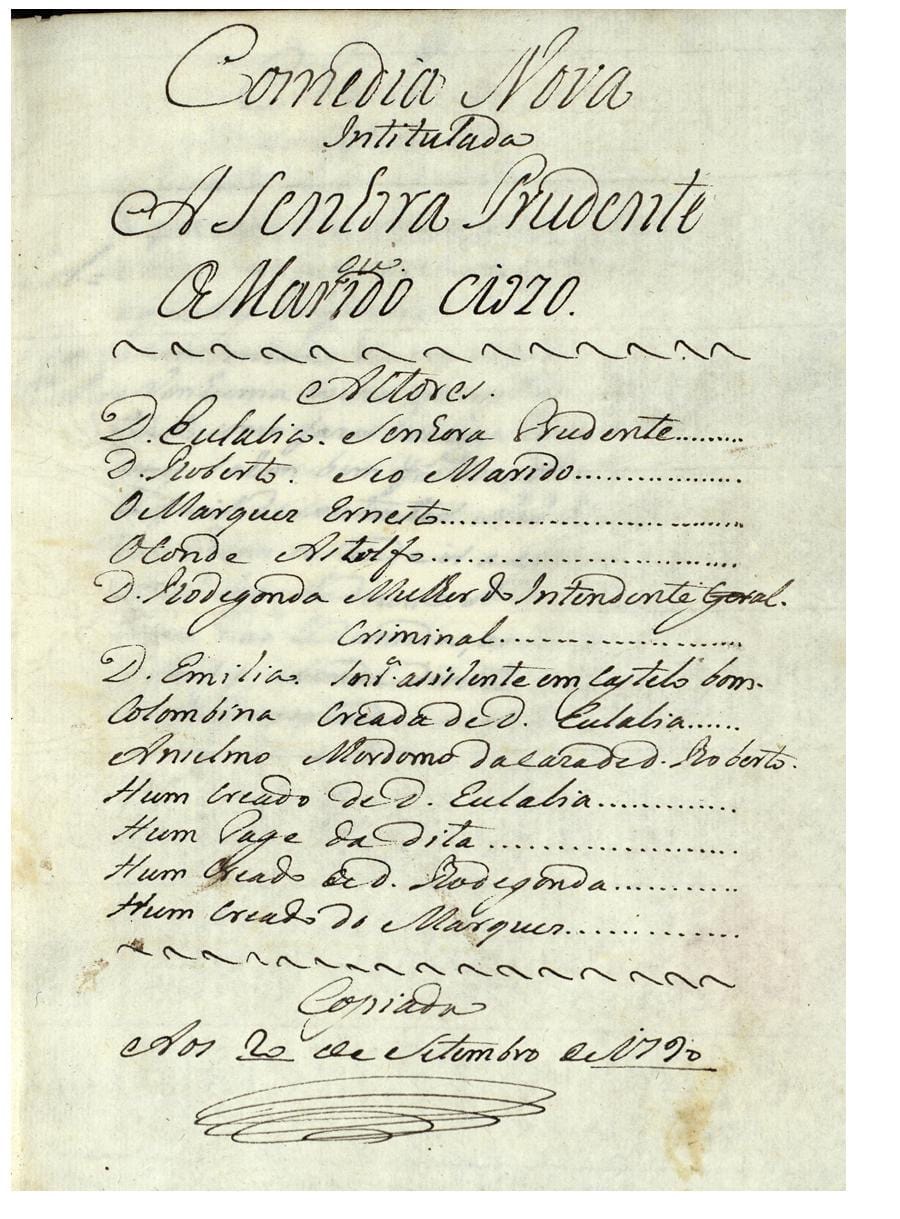 Comedia Nova
Intitulada
A Senhora Prudente
ou
O Marido Ciozo.
Actores.
D. Eulalia. Senhora Prudente.........
D. Roberto. Seo Marido.................
O Marquez Ernesto..........................
O Conde Astolfo..............................
D. Rodegonda Mulher do Intendente Geral.
Criminal..........................
D. Emilia. Snrª. assistente em Castelo bom.
Colombina Creada de D. Eulalia......
Anselmo Mordomo da caza de d. Roberto.
Hum Creado de D. Eulalia.............
Hum Page da dita .......................
Hum Creado de d. Rodegonda............
Hum Creado do Marquez................
Copiada
Aos 20 de Setembro de 1790